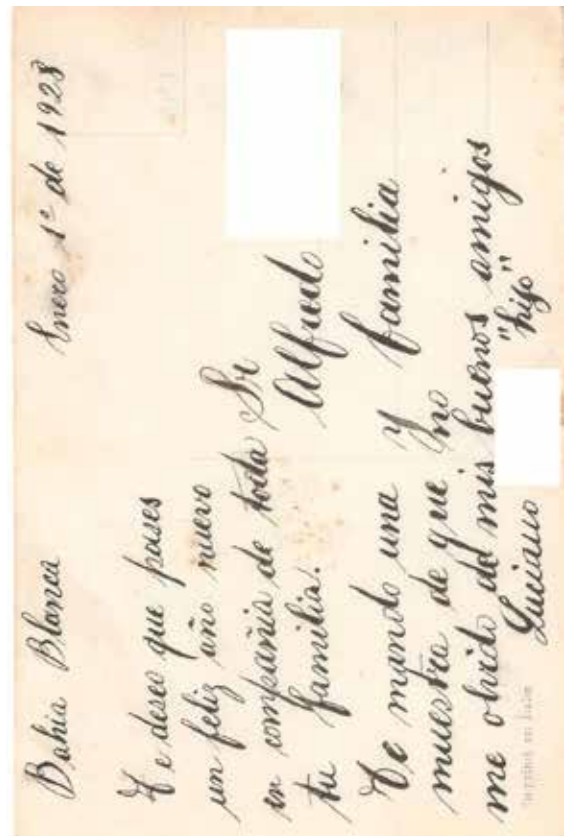 Bahia Blanca Enero 1º de 1928
Te deseo que pases
un feliz año nuevo
en compañia de toda
tu familia.
Sr
Alfredo
y familia
Te mando una
muestra de que no
me olvido de mis buenos amigos
Luciano "hijo"